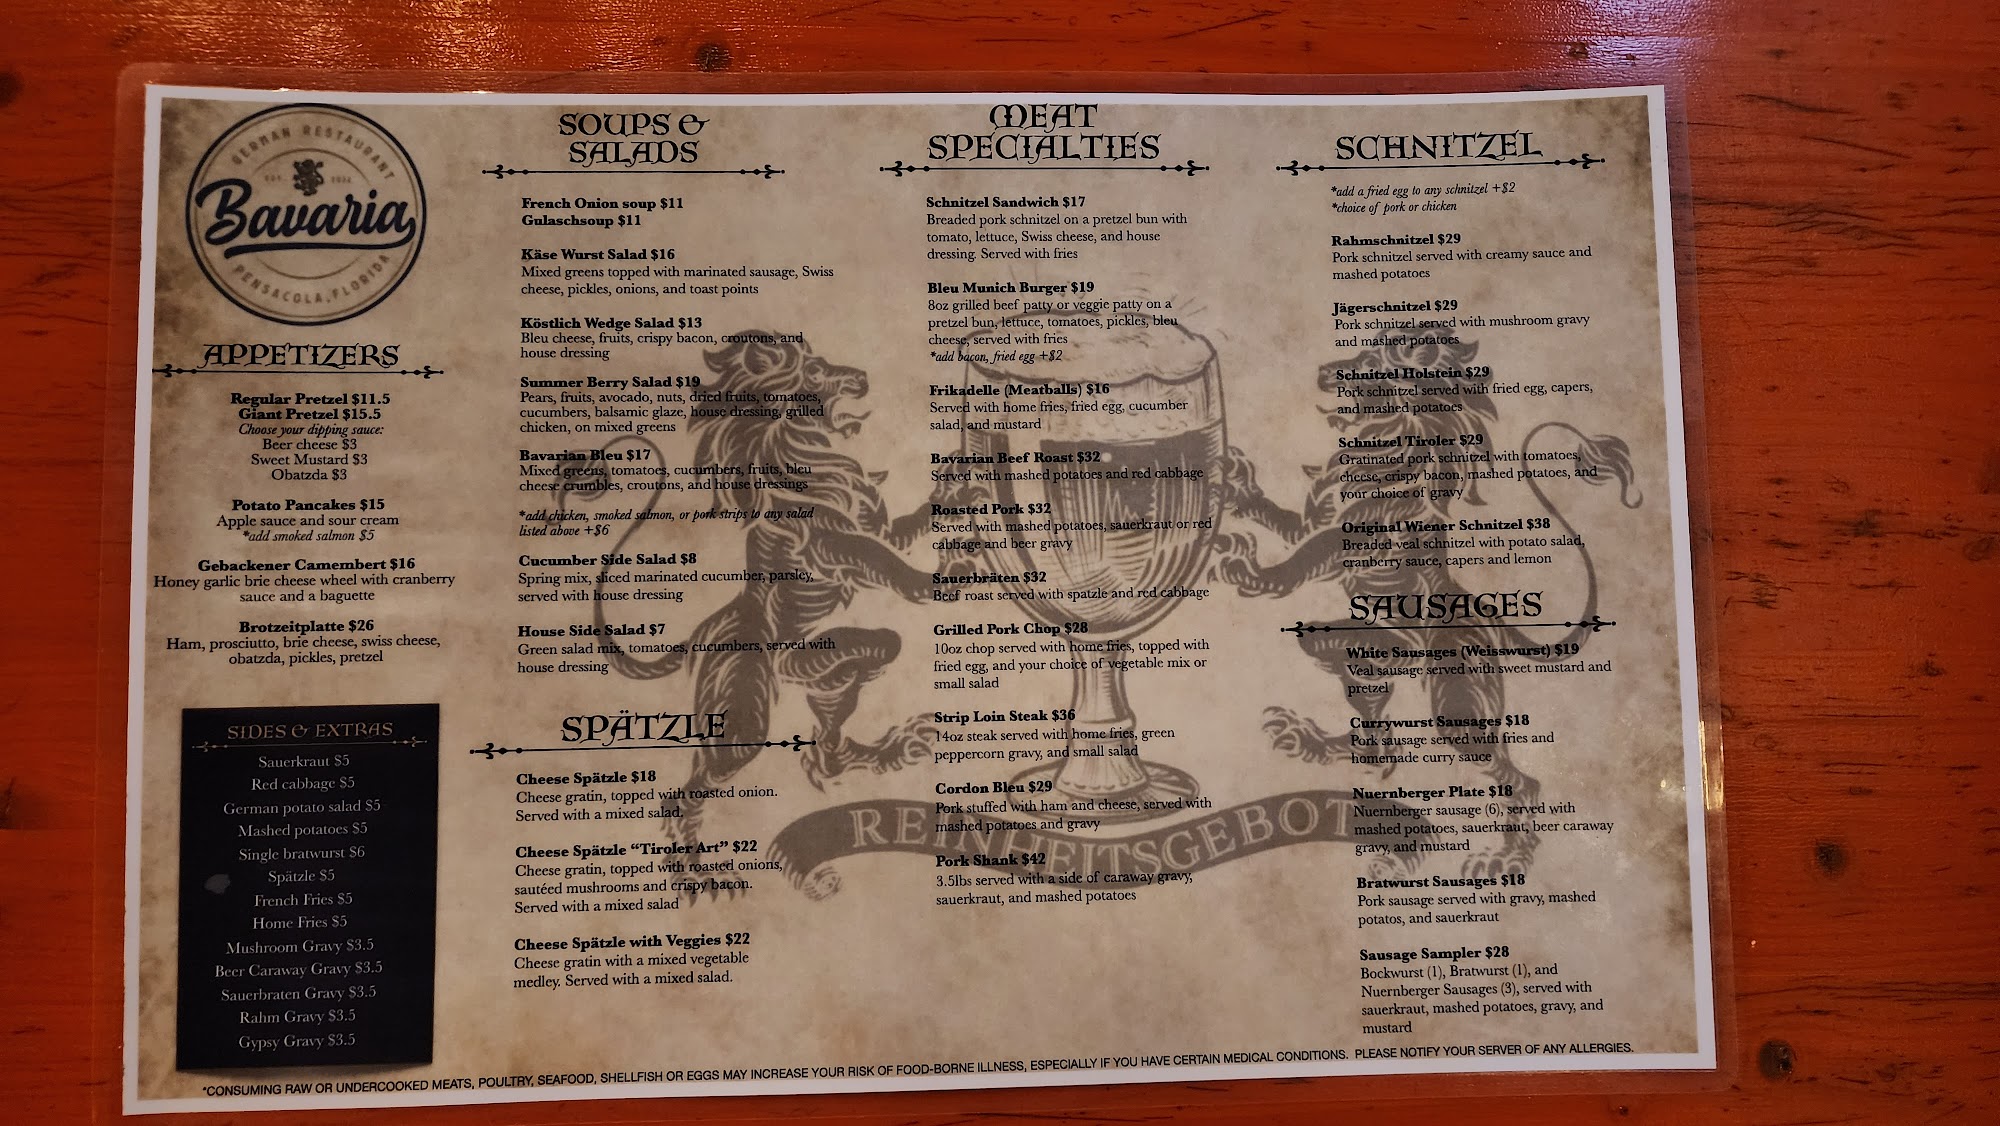 GERMAN RESTAURANT
EST. 2022
Bavaria
PENSACOLA, FLORIDA
APPETIZERS
Regular Pretzel $11.5
Giant Pretzel $15.5
Choose your dipping sauce:
Beer cheese $3
Sweet Mustard $3
Obatzda $3
Potato Pancakes $15
Apple sauce and sour cream
*add smoked salmon $5
Gebackener Camembert $16
Honey garlic brie cheese wheel with cranberry
sauce and a baguette
Brotzeitplatte $26
Ham, prosciutto, brie cheese, swiss cheese,
obatzda, pickles, pretzel
SIDES & EXTRAS
Sauerkraut $5
Red cabbage $5
German potato salad $5
Mashed potatoes $5
Single bratwurst $6
Spätzle $5
French Fries $5
Home Fries $5
Mushroom Gravy $3.5
Beer Caraway Gravy $3.5
Sauerbraten Gravy $3.5
Rahm Gravy $3.5
Gypsy Gravy $3.5
SOUPS &
SALADS
French Onion soup $11
Gulaschsoup $11
Käse Wurst Salad $16
Mixed greens topped with marinated sausage, Swiss
cheese, pickles, onions, and toast points
Köstlich Wedge Salad $13
Bleu cheese, fruits, crispy bacon, croutons, and
house dressing
Summer Berry Salad $19
Pears, fruits, avocado, nuts, dried fruits, tomatoes,
cucumbers, balsamic glaze, house dressing, grilled
chicken, on mixed greens
Bavarian Bleu $17
Mixed greens, tomatoes, cucumbers, fruits, bleu
cheese crumbles, croutons, and house dressings
*add chicken, smoked salmon, or pork strips to any salad
listed above +$6
Cucumber Side Salad $8
Spring mix, sliced marinated cucumber, parsley,
served with house dressing
House Side Salad $7
Green salad mix, tomatoes, cucumbers, served with
house dressing
SPÄTZLE
Cheese Spätzle $18
Cheese gratin, topped with roasted onion.
Served with a mixed salad.
Cheese Spätzle “Tiroler Art” $22
Cheese gratin, topped with roasted onions,
sautéed mushrooms and crispy bacon.
Served with a mixed salad
Cheese Spätzle with Veggies $22
Cheese gratin with a mixed vegetable
medley. Served with a mixed salad.
MEAT
SPECIALTIES
Schnitzel Sandwich $17
Breaded pork schnitzel on a pretzel bun with
tomato, lettuce, Swiss cheese, and house
dressing. Served with fries
Bleu Munich Burger $19
8oz grilled beef patty or veggie patty on a
pretzel bun, lettuce, tomatoes, pickles, bleu
cheese, served with fries
*add bacon, fried egg +$2
Frikadelle (Meatballs) $16
Served with home fries, fried egg, cucumber
salad, and mustard
Bavarian Beef Roast $32
Served with mashed potatoes and red cabbage
Roasted Pork $32
Served with mashed potatoes, sauerkraut or red
cabbage and beer gravy
Sauerbräten $32
Beef roast served with spatzle and red cabbage
Grilled Pork Chop $28
10oz chop served with home fries, topped with
fried egg, and your choice of vegetable mix or
small salad
Strip Loin Steak $36
14oz steak served with home fries, green
peppercorn gravy, and small salad
Cordon Bleu $29
Pork stuffed with ham and cheese, served with
mashed potatoes and gravy
Pork Shank $42
3.5lbs served with a side of caraway gravy,
sauerkraut, and mashed potatoes
REINHEITSGEBOT
SCHNITZEL
*add a fried egg to any schnitzel +$2
*choice of pork or chicken
Rahmschnitzel $29
Pork schnitzel served with creamy sauce and
mashed potatoes
Jägerschnitzel $29
Pork schnitzel served with mushroom gravy
and mashed potatoes
Schnitzel Holstein $29
Pork schnitzel served with fried egg, capers,
and mashed potatoes
Schnitzel Tiroler $29
Gratinated pork schnitzel with tomatoes,
cheese, crispy bacon, mashed potatoes, and
your choice of gravy
Original Wiener Schnitzel $38
Breaded veal schnitzel with potato salad,
cranberry sauce, capers and lemon
SAUSAGES
White Sausages (Weisswurst) $19
Veal sausage served with sweet mustard and
pretzel
Currywurst Sausages $18
Pork sausage served with fries and
homemade curry sauce
Nuernberger Plate $18
Nuernberger sausage (6), served with
mashed potatoes, sauerkraut, beer caraway
gravy, and mustard
Bratwurst Sausages $18
Pork sausage served with gravy, mashed
potatos, and sauerkraut
Sausage Sampler $28
Bockwurst (1), Bratwurst (1), and
Nuernberger Sausages (3), served with
sauerkraut, mashed potatoes, gravy, and
mustard
*CONSUMING RAW OR UNDERCOOKED MEATS, POULTRY, SEAFOOD, SHELLFISH OR EGGS MAY INCREASE YOUR RISK OF FOOD-BORNE ILLNESS, ESPECIALLY IF YOU HAVE CERTAIN MEDICAL CONDITIONS. PLEASE NOTIFY YOUR SERVER OF ANY ALLERGIES.